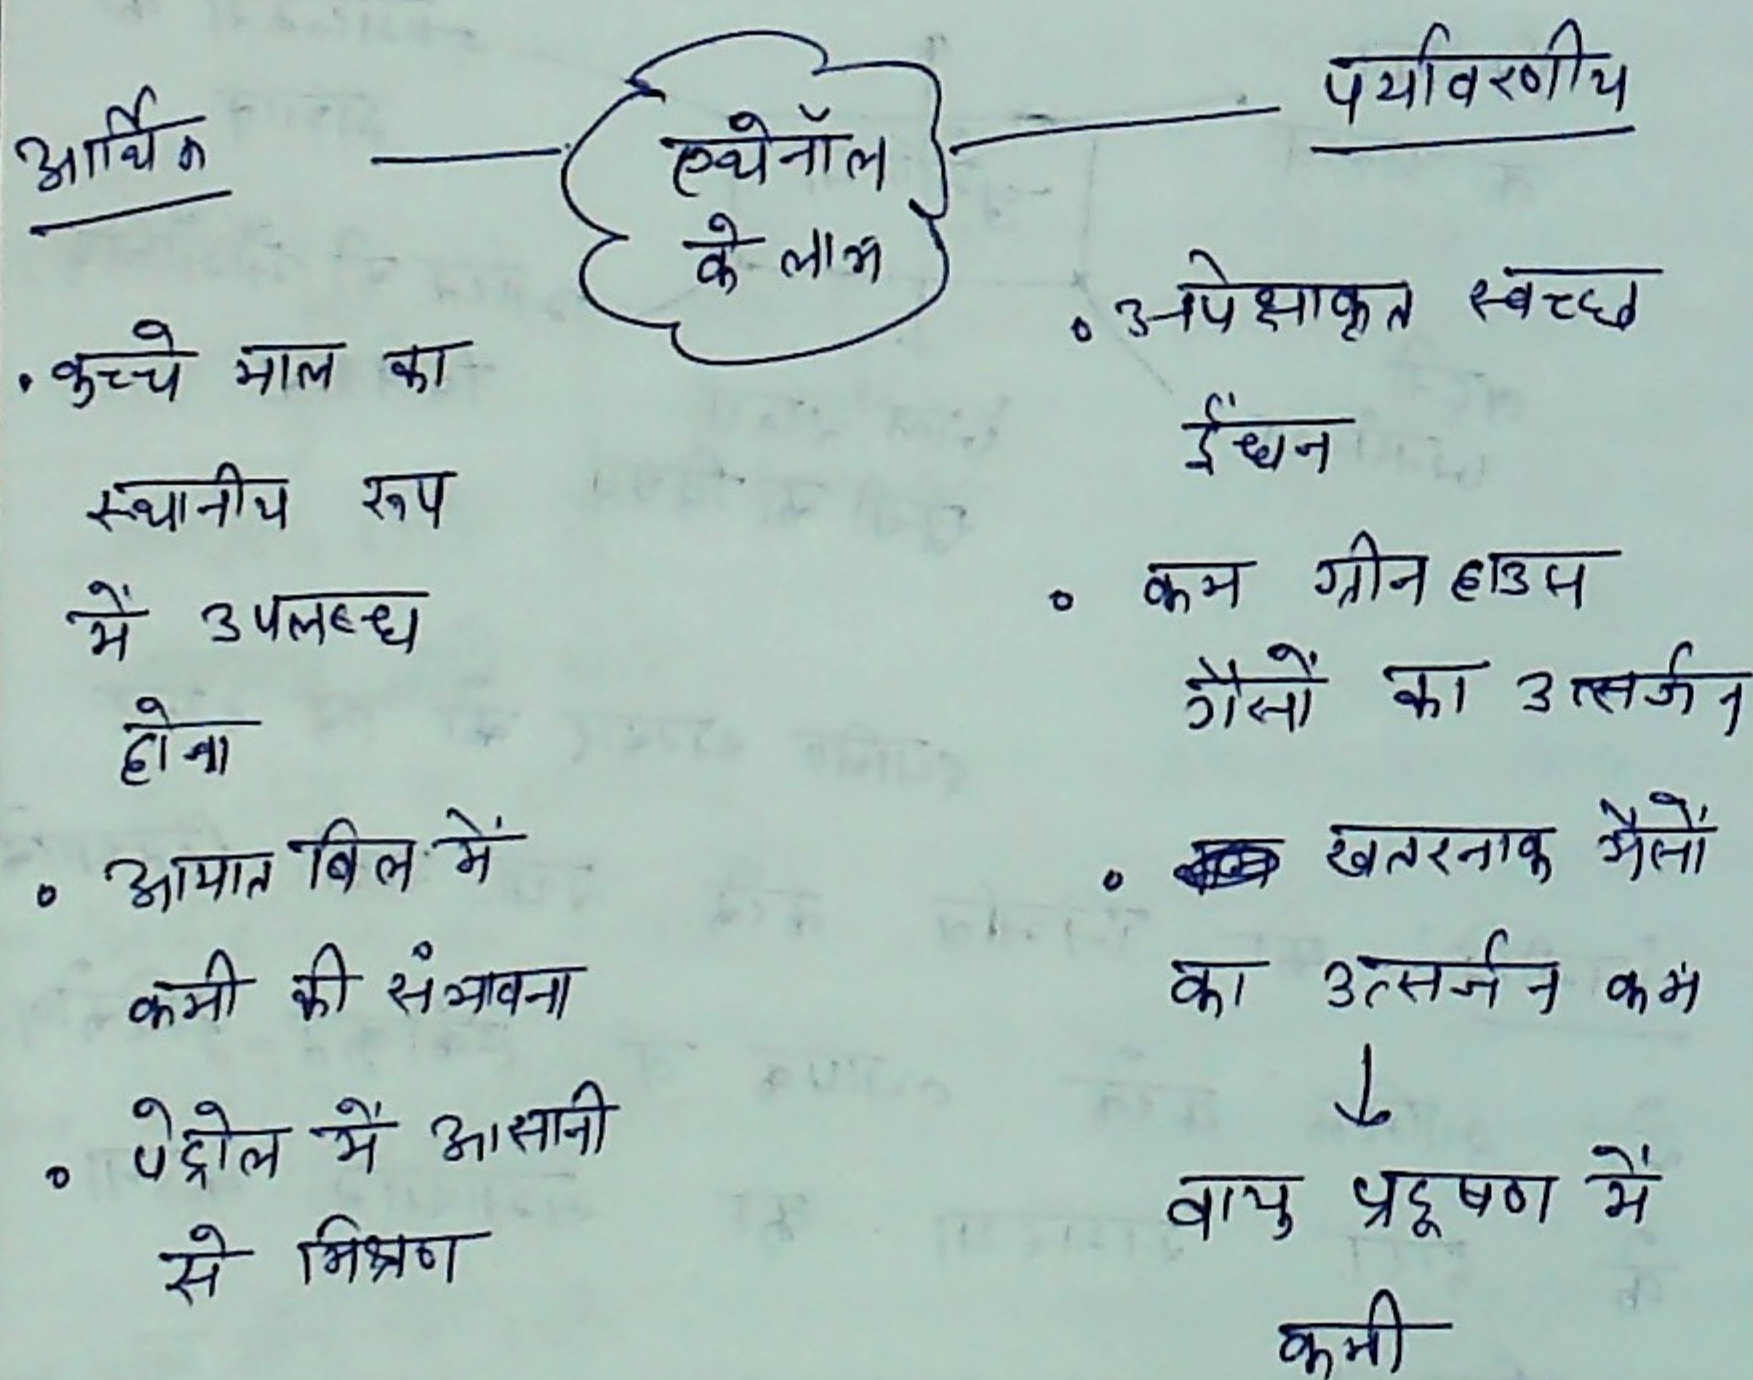 एथेनॉल
के लाभ
आर्थिक
• कच्चे माल का
स्थानीय रूप
में उपलब्ध
होना
• आयात बिल में
कमी की संभावना
• पेट्रोल में आसानी
से मिश्रण
पर्यावरणीय
• अपेक्षाकृत स्वच्छ
ईंधन
• कम ग्रीन हाउस
गैसों का उत्सर्जन
• खतरनाक गैसों
का उत्सर्जन कम
↓
वायु प्रदूषण में
कमी